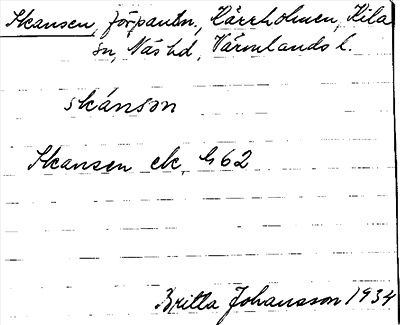 Skansen, förpantn., Kärrholmen, Kila
sn, Näs hd, Värmlands l.
skánsən
Skansen ek. G62
Britta Johansson 1934